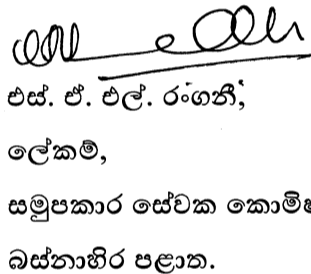 එස්. ඒ. එල්. රංගනී,
ලේකම්,
සමුපකාර සේවක
බස්නාහිර පළාත.